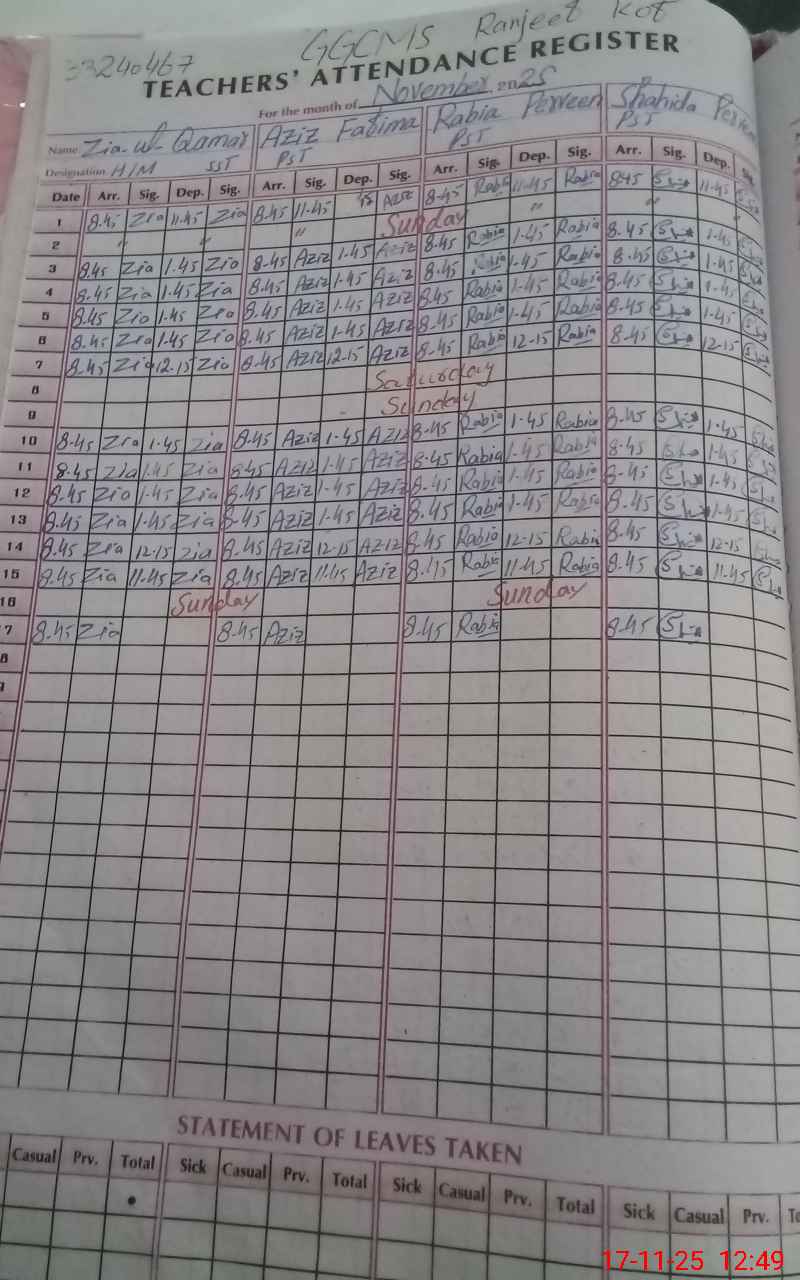 33240467 GGCMS Ranjeet Kot
TEACHERS' ATTENDANCE REGISTER
For the month of November 2025
Name Zia-ul-Qamar Aziz Fatima Rabia Perveen Shahida
Designation H/M SST PST PST PST
Date Arr. Sig. Dep. Sig. Arr. Sig. Dep. Sig. Arr. Sig. Dep. Sig. Arr. Sig. Dep.
1 8.45 Zia 11.45 Zia 8.45 11.45 Aziz 8.45 Rabia 11.45 Rabia 8.45 11.45
2 " " " Sunday " " "
3 8.45 Zia 1.45 Zia 8.45 Aziz 1.45 Aziz 8.45 Rabia 1.45 Rabia 8.45 1.45
4 8.45 Zia 1.45 Zia 8.45 Aziz 1.45 Aziz 8.45 Rabia 1.45 Rabia 8.45 1.45
5 8.45 Zia 1.45 Zia 8.45 Aziz 1.45 Aziz 8.45 Rabia 1.45 Rabia 8.45 1.45
6 8.45 Zia 1.45 Zia 8.45 Aziz 1.45 Aziz 8.45 Rabia 1.45 Rabia 8.45 1.45
7 8.45 Zia 12.15 Zia 8.45 Aziz 12.15 Aziz 8.45 Rabia 12-15 Rabia 8.45 12-15
8 Saturday
9 Sunday
10 8.45 Zia 1.45 Zia 8.45 Aziz 1.45 Aziz 8.45 Rabia 1.45 Rabia 8.45 1.45
11 8.45 Zia 1.45 Zia 8.45 Aziz 1.45 Aziz 8.45 Rabia 1.45 Rabia 8.45 1.45
12 8.45 Zia 1.45 Zia 8.45 Aziz 1.45 Aziz 8.45 Rabia 1.45 Rabia 8.45 1.45
13 8.45 Zia 1.45 Zia 8.45 Aziz 1.45 Aziz 8.45 Rabia 1.45 Rabia 8.45 1.45
14 8.45 Zia 12-15 Zia 8.45 Aziz 12-15 Aziz 8.45 Rabia 12-15 Rabia 8.45 12-15
15 8.45 Zia 11.45 Zia 8.45 Aziz 11.45 Aziz 8.45 Rabia 11.45 Rabia 8.45 11.45
16 Sunday Sunday
7 8.45 Zia 8.45 Aziz 8.45 Rabia 8.45
STATEMENT OF LEAVES TAKEN
Casual Prv. Total Sick Casual Prv. Total Sick Casual Prv. Total Sick Casual Prv.
17-11-25 12:49